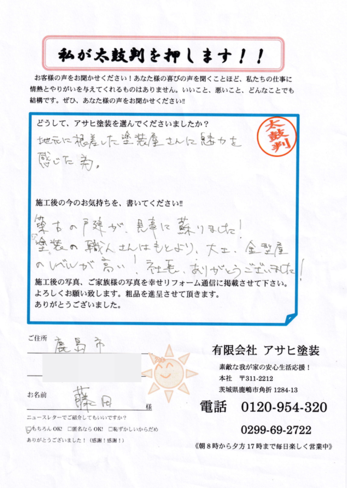 私が太鼓判を押します！！
お客様の声をお聞かせください！あなた様の喜びの声を聞くことほど、私たちの仕事に
情熱とやりがいを与えてくれるものはありません。いいこと、悪いこと、どんなことでも
結構です。ぜひ、あなた様の声をお聞かせください!!
どうして、アサヒ塗装を選んでくださいましたか？
太鼓判
地元に密着した塗装屋さんに魅力を
感じた為。
施工後の今のお気持ちを、書いてください!!
築古の戸建が、見事に蘇りました！
塗装の職人さんはもとより、大工、金型屋
のレベルが高い！社長、ありがとうございました！
施工後の写真、ご家族様の写真を幸せリフォーム通信に掲載させて下さい。
よろしくお願い致します。粗品を進呈させて頂きます。
ありがとうございました。
ご住所
鹿島市
お名前
藤田
様
ニュースレターでご紹介してもいいですか？
☑もちろんOK! □匿名ならOK! □恥ずかしいからだめ
ありがとうございます！(感謝！感謝！)
有限会社 アサヒ塗装
素敵な我が家の安心生活応援！
本社 〒311-2212
茨城県鹿嶋市角折 1284-13
電話 0120-954-320
0299-69-2722
《朝８時から夕方17時まで毎日楽しく営業中》